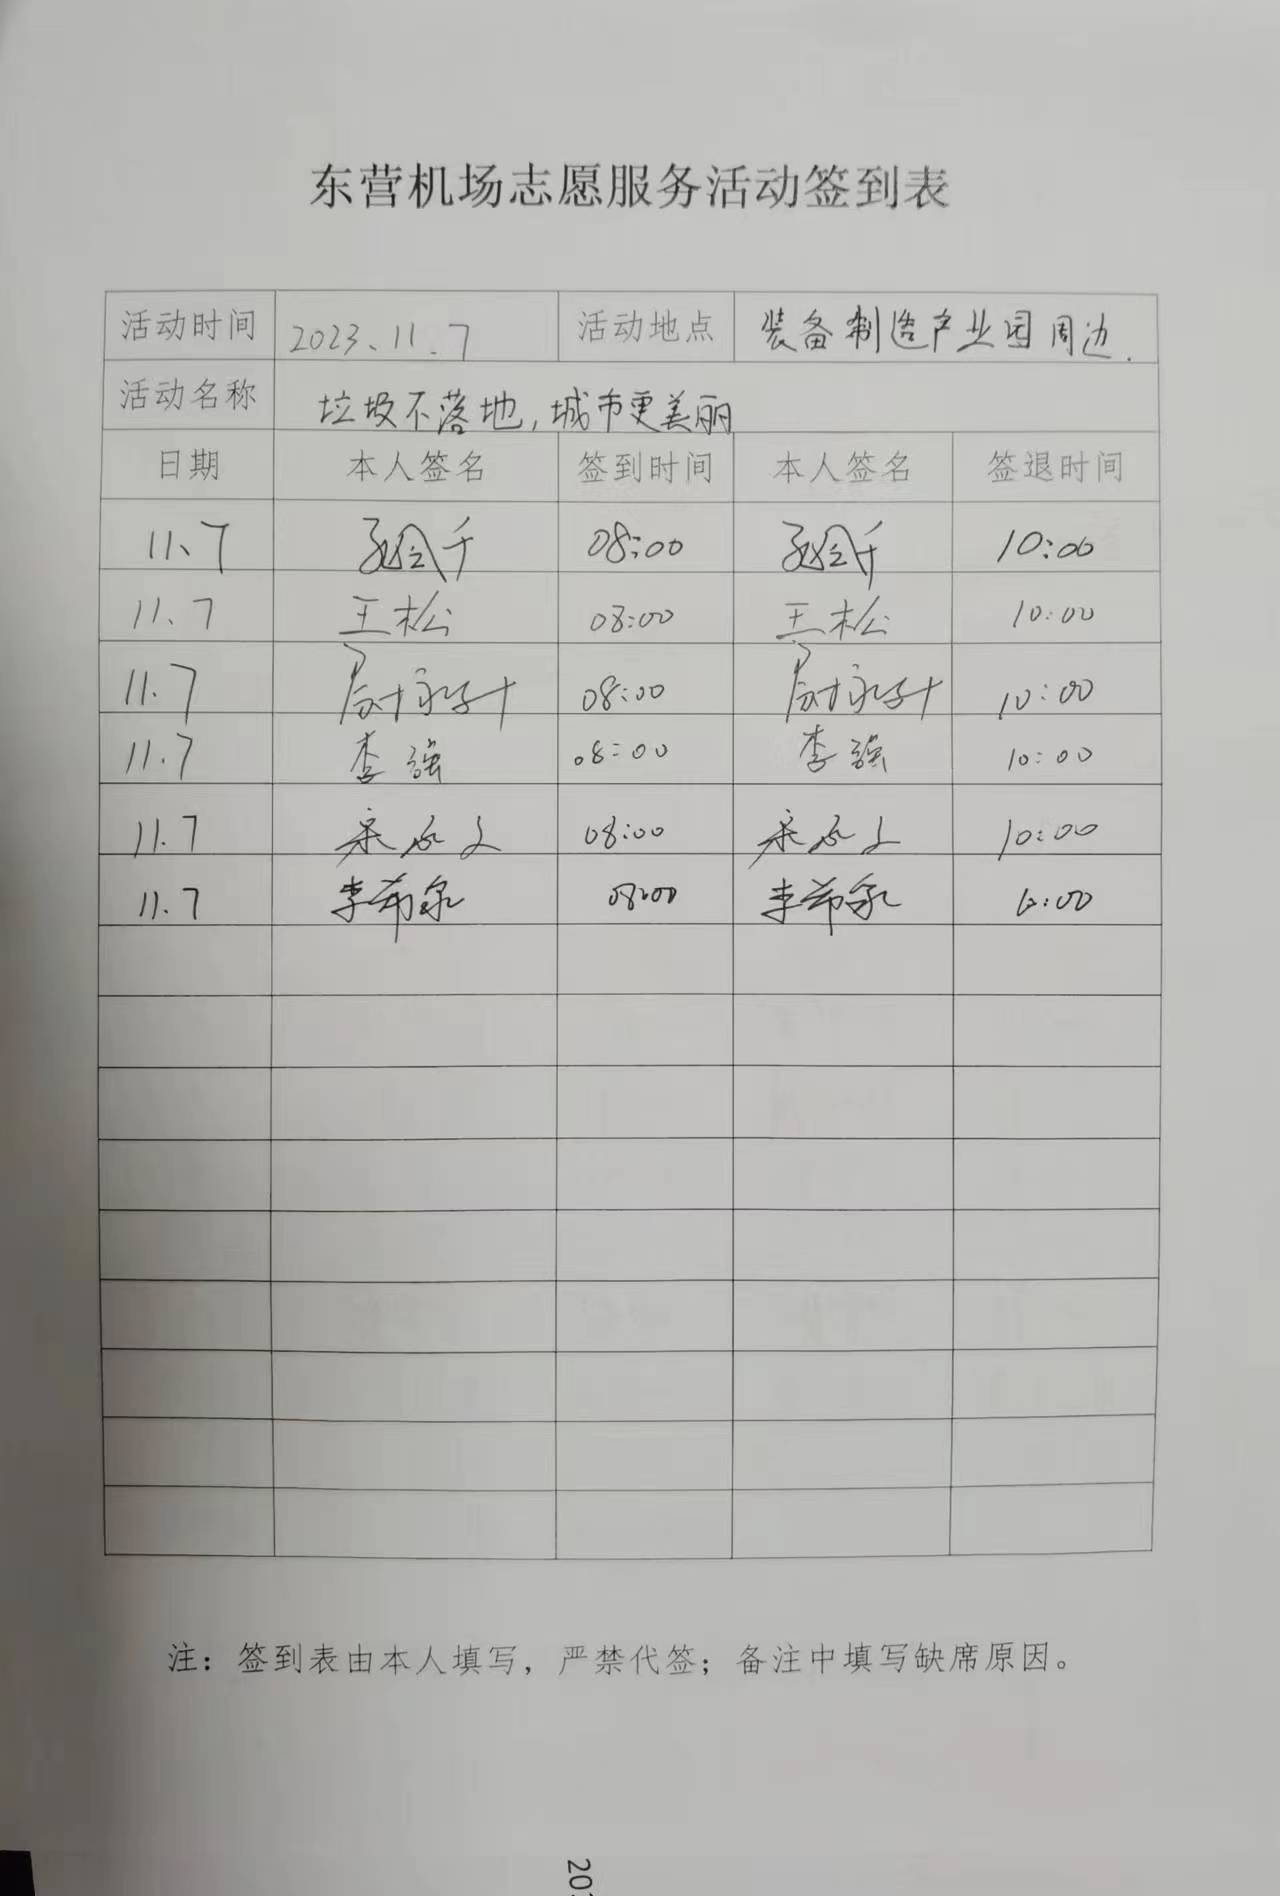 东营机场志愿服务活动签到表
活动时间 2023.11.7 活动地点 装备制造产业园周边.
活动名称 垃圾不落地,城市更美丽
日期 本人签名 签到时间 本人签名 签退时间
11.7 08:00 10:00
11.7 王松 08:00 王松 10:00
11.7 08:00 10:00
11.7 李强 08:00 李强 10:00
11.7 08:00 10:00
11.7 李希泉 08:00 李希泉
注：签到表由本人填写，严禁代签；备注中填写缺席原因。